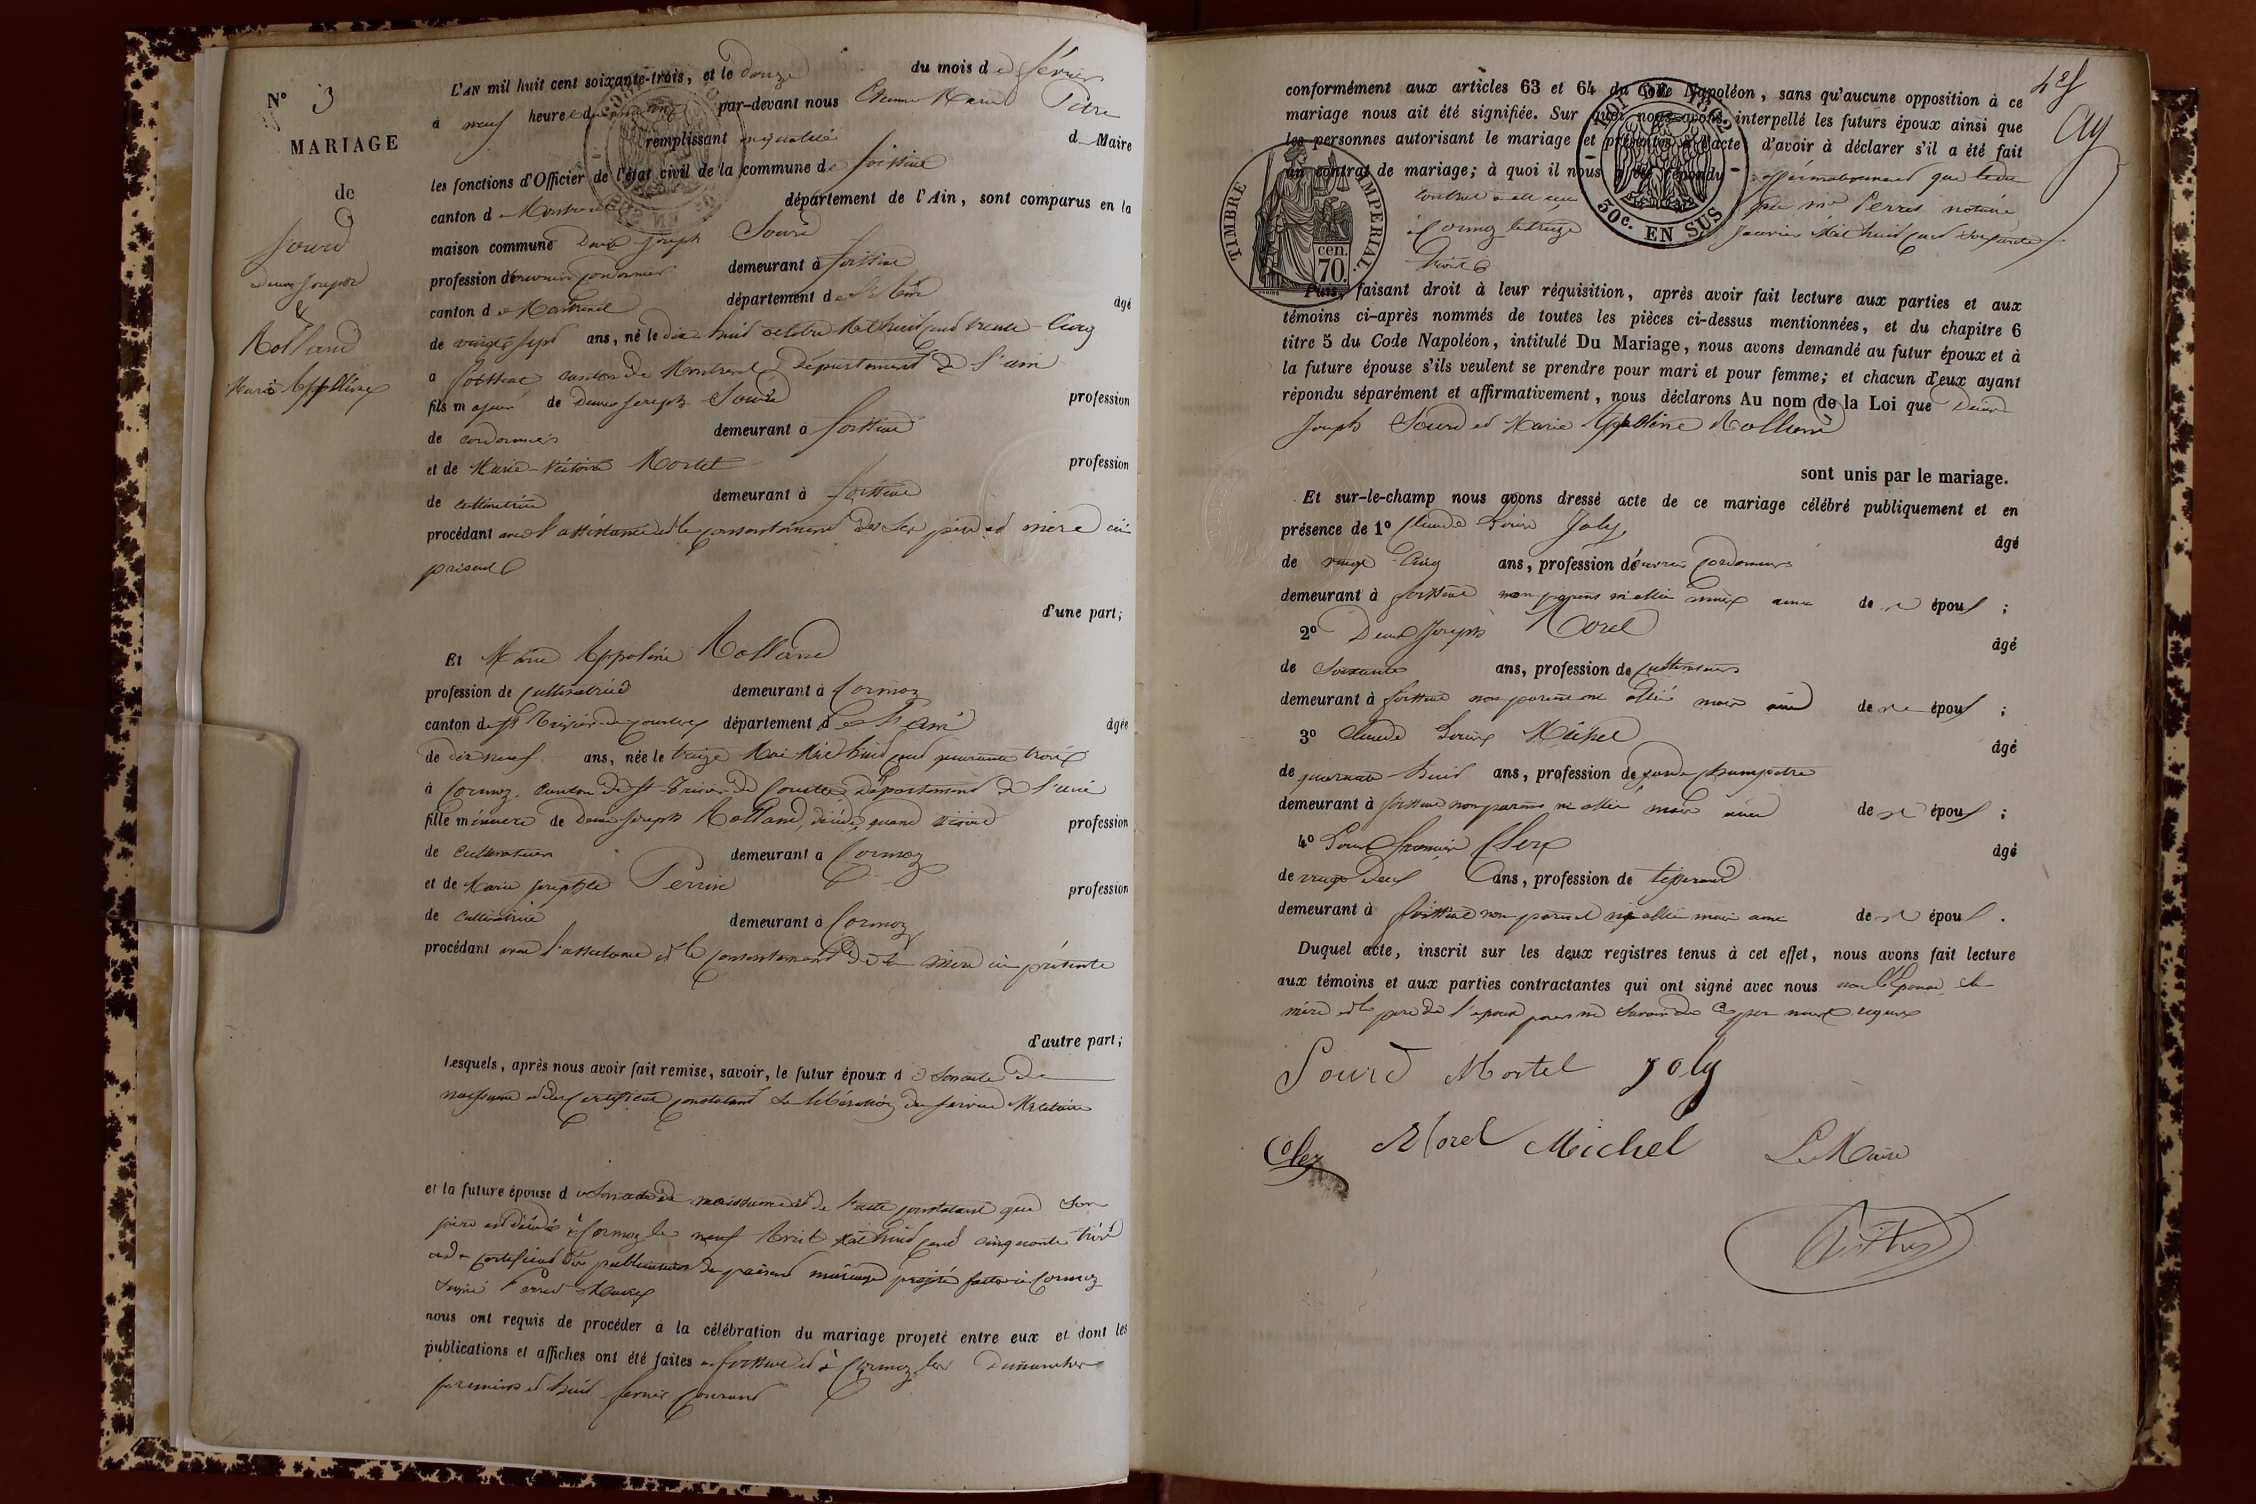 N° 3
MARIAGE
de
Sourd
Denis Joseph
&
Rolland
Marie Appoline
L'AN mil huit cent soixante-trois, et le douze du mois de février
à neuf heures du par-devant nous Etienne Marie Pitre
remplissant en qualité de Maire
les fonctions d'Officier de l'état civil de la commune de foissiat
canton de Montrevel département de l'Ain, sont comparus en la
maison commune Denis Joseph Sourd
profession d'ouvrier cordonnier demeurant à foissiat
canton de Montrevel département de l'Ain âgé
de vingt sept ans, né le dix huit octobre Mil huit cent trente Cinq
à foissiat canton de Montrevel département de l'ain
fils majeur de Denis Joseph Sourd profession
de cordonnier demeurant à foissiat
et de Marie Victoire Mortel profession
de cultivatrice demeurant à foissiat
procédant avec l'assistance et le consentement de ses père et mère ici
présents
d'une part;
Et Marie Appoline Rolland
profession de cultivatrice demeurant à Cormoz
canton de St Trivier de Courtes département de l'ain âgée
de dix neuf ans, née le treize Mai Mil huit cent quarante trois
à Cormoz canton de St Trivier de Courtes Département de l'ain
fille mineure de Denis Joseph Rolland, décédé, quand vivait profession
de cultivateur demeurant à Cormoz
et de Marie Josephte Perrin profession
de cultivatrice demeurant à Cormoz
procédant avec l'assistance et le consentement de sa mère ici présente
d'autre part;
Lesquels, après nous avoir fait remise, savoir, le futur époux de son acte de
naissance et du certificat constatant sa libération du service Militaire
et la future épouse de son acte de naissance et de l'acte constatant que son
père est décédé à Cormoz le neuf Avril Mil huit cent cinquante trois
et du certificat de publication du présent mariage projeté faite à Cormoz
signé Perret Maire
nous ont requis de procéder à la célébration du mariage projeté entre eux et dont les
publications et affiches ont été faites à foissiat et à Cormoz les Dimanches
premier et huit février courant
conformément aux articles 63 et 64 du Code Napoléon, sans qu'aucune opposition à ce
mariage nous ait été signifiée. Sur quoi nous avons interpellé les futurs époux ainsi que
les personnes autorisant le mariage et présentes à l'acte, d'avoir à déclarer s'il a été fait
un contrat de mariage; à quoi il nous a été répondu affirmativement que ledit
contrat a été reçu par Me Perret notaire
à Cormoz le treize Janvier Mil huit cent soixante
trois
TIMBRE IMPERIAL
cen. 70.
LOI DE 1862
50c. EN SUS
Puis, faisant droit à leur réquisition, après avoir fait lecture aux parties et aux
témoins ci-après nommés de toutes les pièces ci-dessus mentionnées, et du chapitre 6
titre 5 du Code Napoléon, intitulé Du Mariage, nous avons demandé au futur époux et à
la future épouse s'ils veulent se prendre pour mari et pour femme; et chacun d'eux ayant
répondu séparément et affirmativement, nous déclarons Au nom de la Loi que Denis
Joseph Sourd et Marie Appoline Rolland
sont unis par le mariage.
Et sur-le-champ nous avons dressé acte de ce mariage célébré publiquement et en
présence de 1° Claude Louis Joly âgé
de vingt Cinq ans, profession d'ouvrier cordonnier
demeurant à foissiat non parent ni allié mais ami de l'époux;
2° Denis Joseph Morel âgé
de Soixante ans, profession de cultivateur
demeurant à foissiat non parent ni allié mais ami de l'époux;
3° Claude Louis Michel âgé
de quarante huit ans, profession de garde champêtre
demeurant à foissiat non parent ni allié mais ami de l'époux;
4° âgé
de vingt deux ans, profession de tisserand
demeurant à foissiat non parent ni allié mais ami de l'époux.
Duquel acte, inscrit sur les deux registres tenus à cet effet, nous avons fait lecture
aux témoins et aux parties contractantes qui ont signé avec nous non l'épouse, sa
mère et le père de l'époux pour ne savoir de ce par nous requis
Sourd Mortel Joly
Clez Morel Michel Le Maire
Pitre